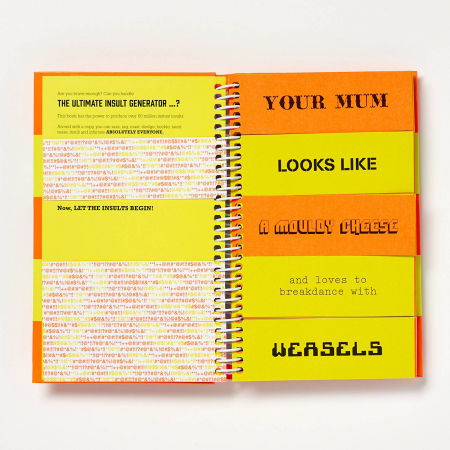 Are you brave enough? Can you handle
THE ULTIMATE INSULT GENERATOR ...?
This book has the power to produce over 60 million instant insults
ABSOLUTELY EVERYONE.
Now, LET THE INSULTS BEGIN!
YOUR MUM
LOOKS LIKE
A MOULDY CHEESE
and loves to
breakdance with
WEASELS